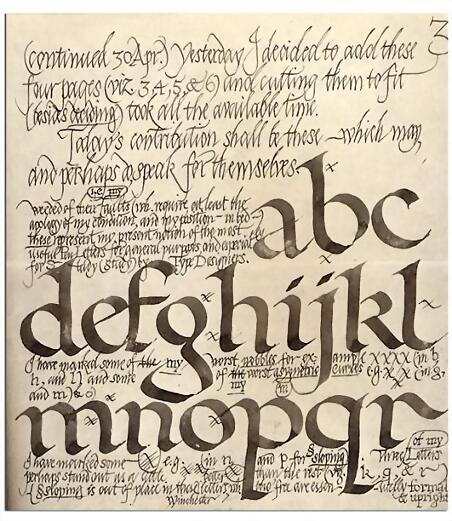 3
(continued 30 Apr.) Yesterday I decided to add these
four pages (viz. 3, 4, 5, & 6) and cutting them to fit
(besides deciding) took all the available time.
Today's contribution shall be these – which may,
and perhaps speak for themselves.
be my
weeded of their faults (wh. require at least the
apology of my condition, and my position – in bed
these represent my present notion of the most
useful Pen Letters for general purposes and especial
for Study (study) Type Designers.
abc
defghijkl
I have marked some of the my worst wobbles for example x x x x (in b,
h, and l) and some of the worst asymmetric curves e.g. x x (in g,
and m)
my
mnopqr
I have marked some e.g. (in n and p for sloping Three Letters of my
perhaps stand out as a than the rest (viz. k, q, & r
(sloping is out of place in these letters too are essentially formal
Winchester & upright